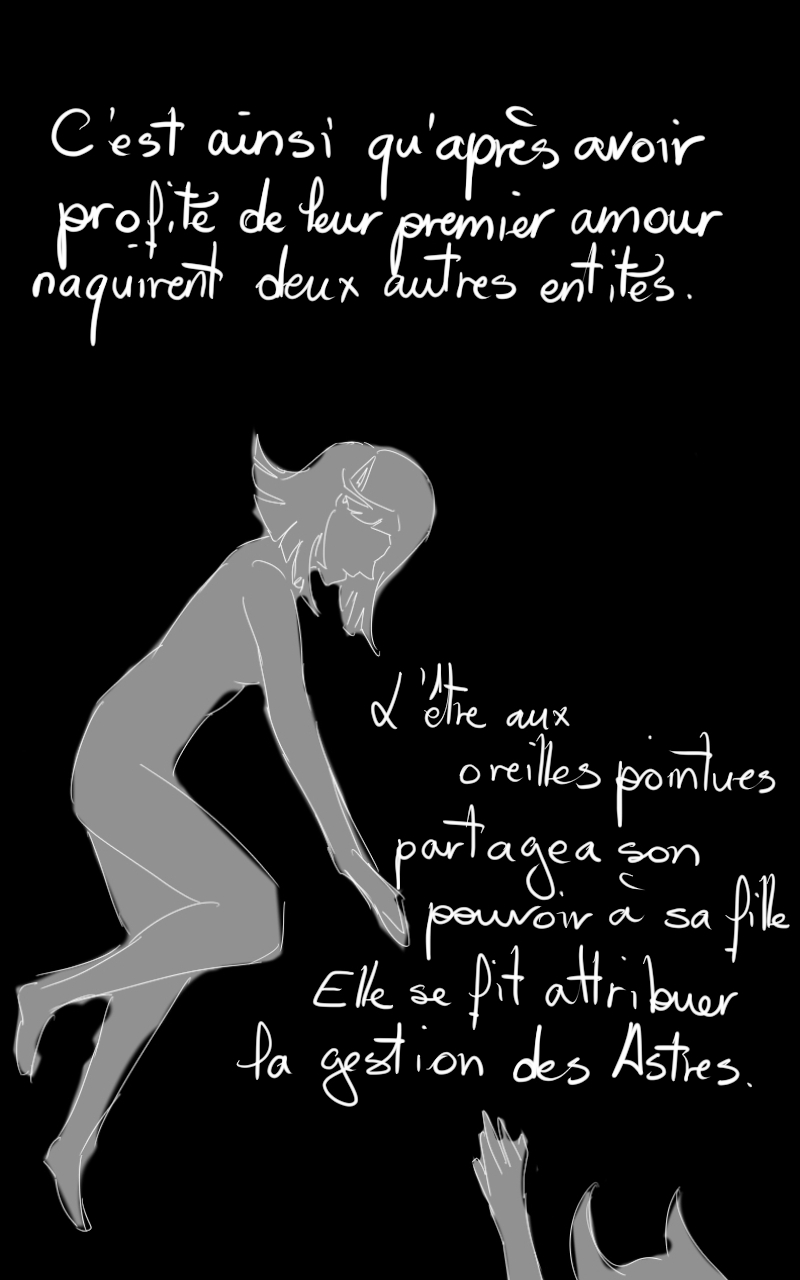 C'est ainsi qu'après avoir
profité de leur premier amour
naquirent deux autres entités.
L'être aux
oreilles pointues
partagea son
pouvoir à sa fille
Elle se fit attribuer
la gestion des Astres.